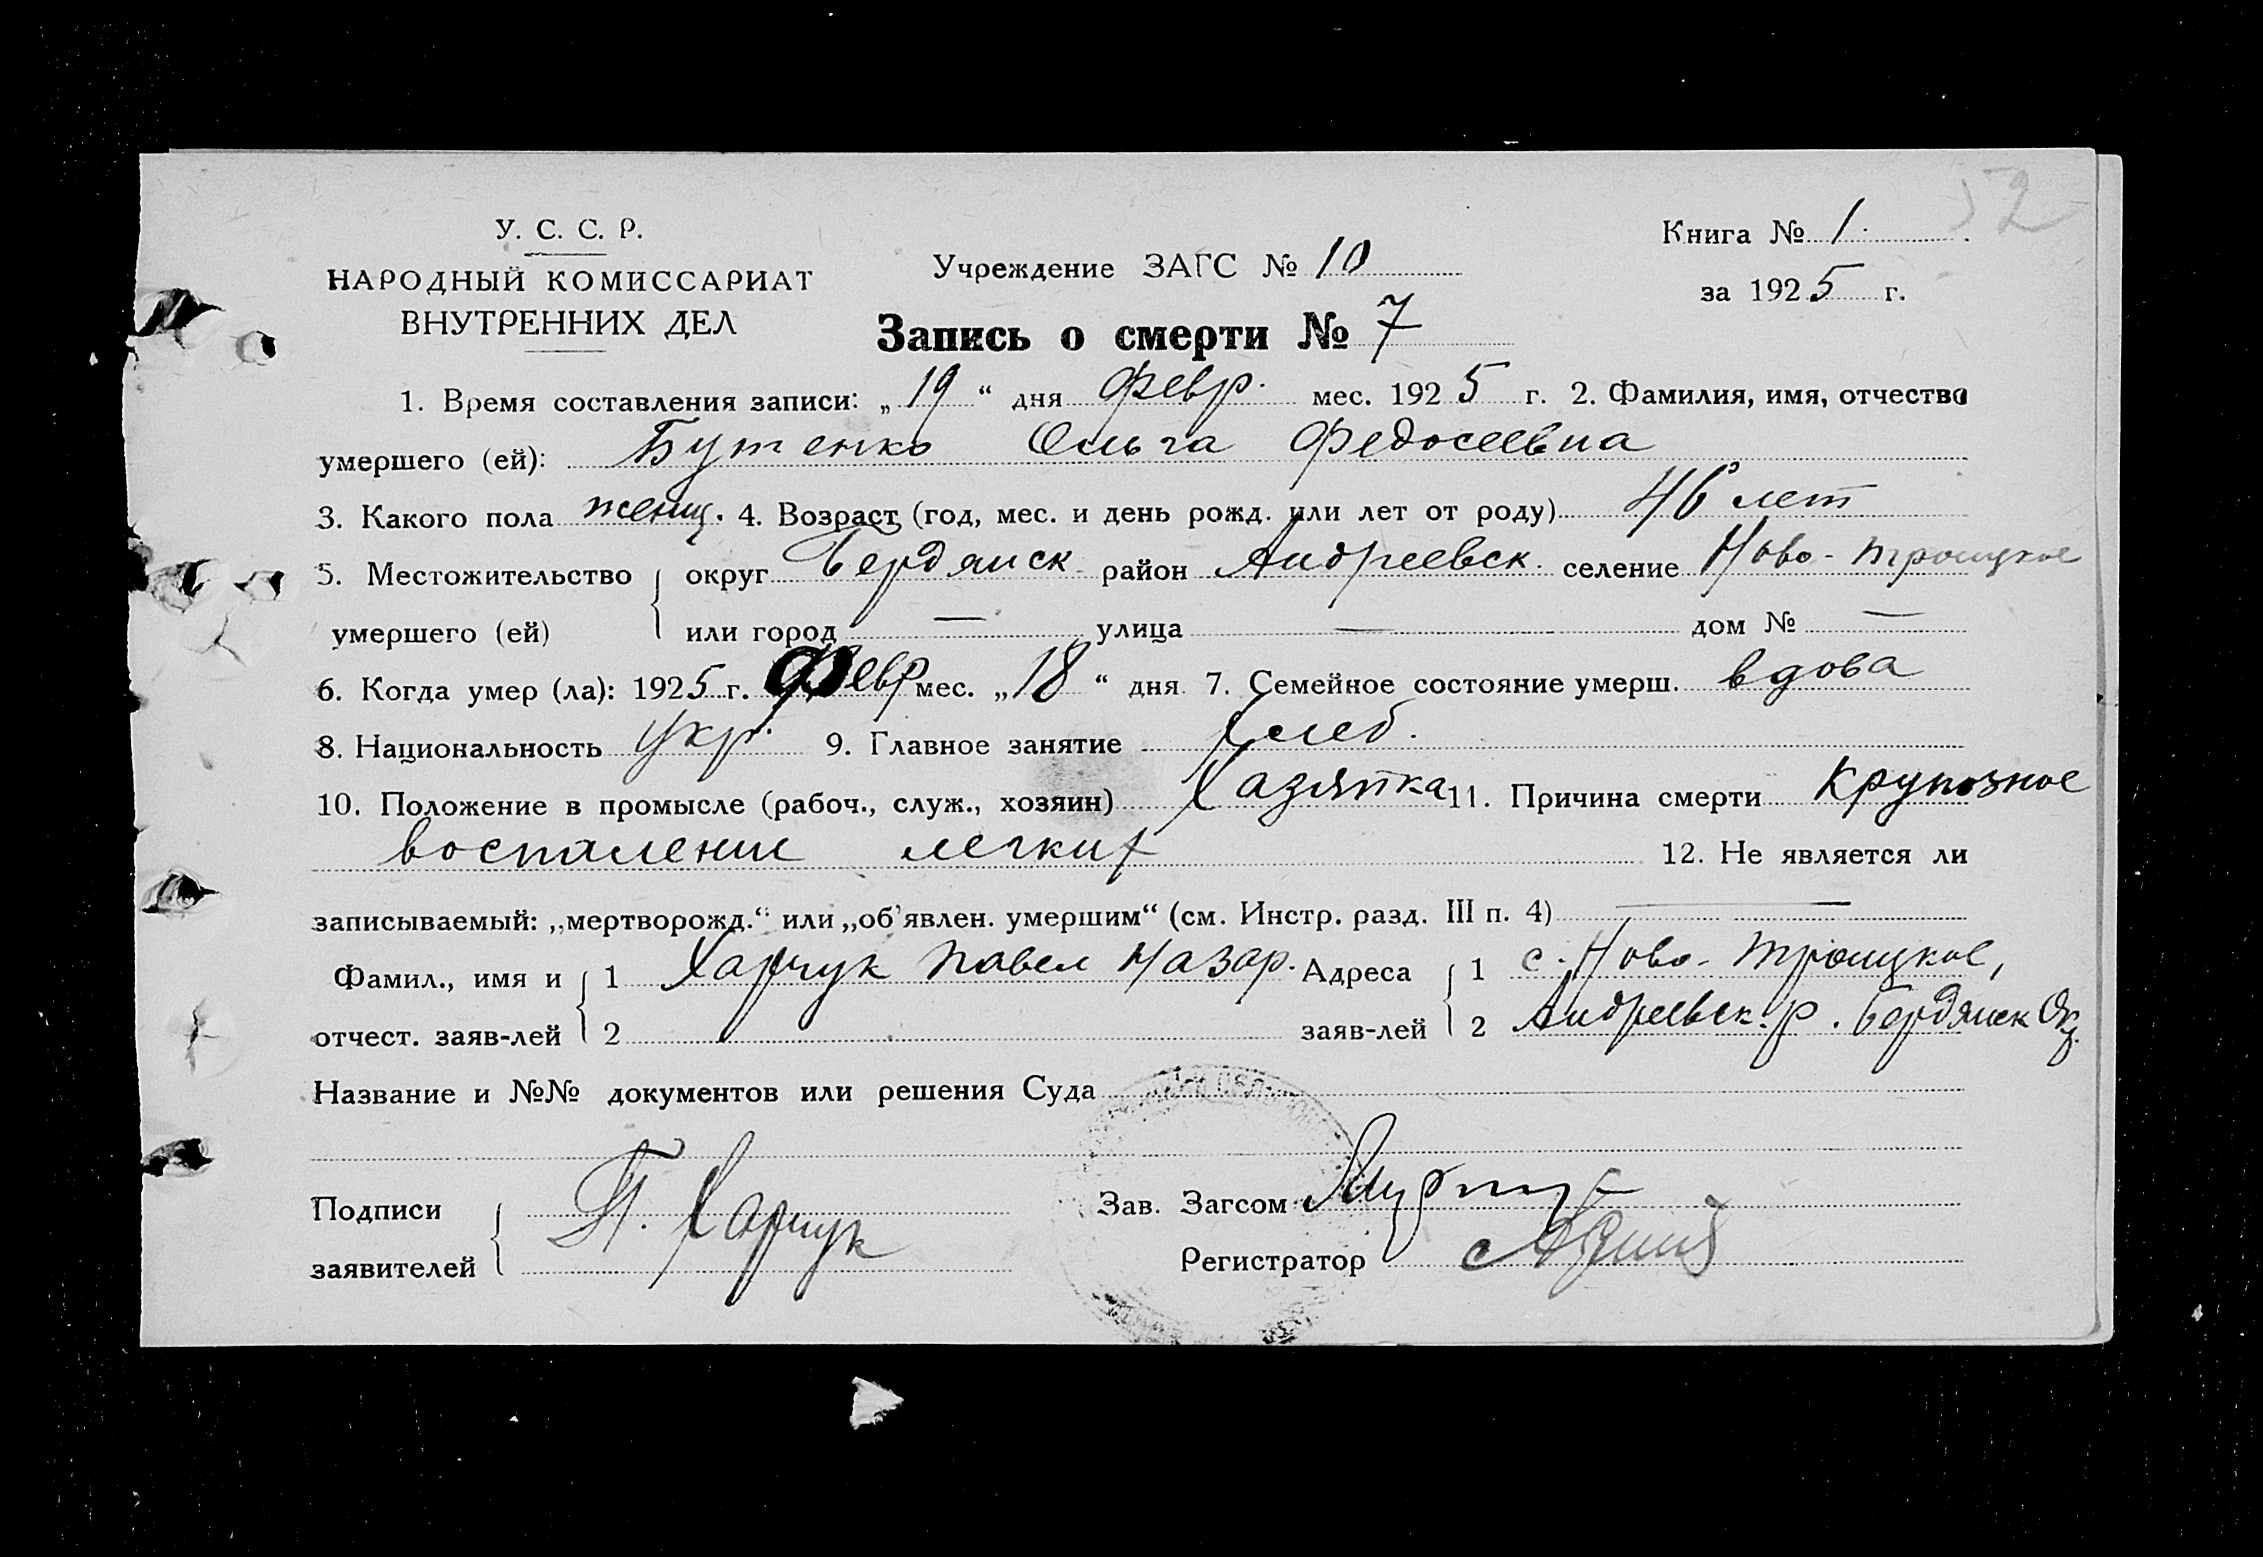 52
У. С. С. Р.
НАРОДНЫЙ КОМИССАРИАТ
ВНУТРЕННИХ ДЕЛ
Учреждение ЗАГС № 10
Книга № 1.
за 1925 г.
Запись о смерти № 7
1. Время составления записи: „19“ дня Февр. мес. 1925 г. 2. Фамилия, имя, отчество
умершего (ей): Бутенко Ольга Федосеевна
3. Какого пола женщ. 4. Возраст (год, мес. и день рожд. или лет от роду) 46 лет
5. Местожительство округ Бердянск район Андреевск. селение Ново-Троицкое
умершего (ей) или город — улица — дом № —
6. Когда умер (ла): 1925 г. Февр мес. „18“ дня 7. Семейное состояние умерш. вдова
8. Национальность укр. 9. Главное занятие Хлеб.
10. Положение в промысле (рабоч., служ., хозяин) Хазяйка 11. Причина смерти Крупозное
воспаление легких 12. Не является ли
записываемый: „мертворожд.“ или „об'явлен. умершим“ (см. Инстр. разд. III п. 4) —
Фамил., имя и 1 Харчук Павел Назар. Адреса 1 с. Ново-Троицкое,
отчест. заяв-лей 2 заяв-лей 2 Андреевск. р. Бердянск Окр.
Название и №№ документов или решения Суда
Подписи П. Харчук Зав. Загсом
заявителей Регистратор